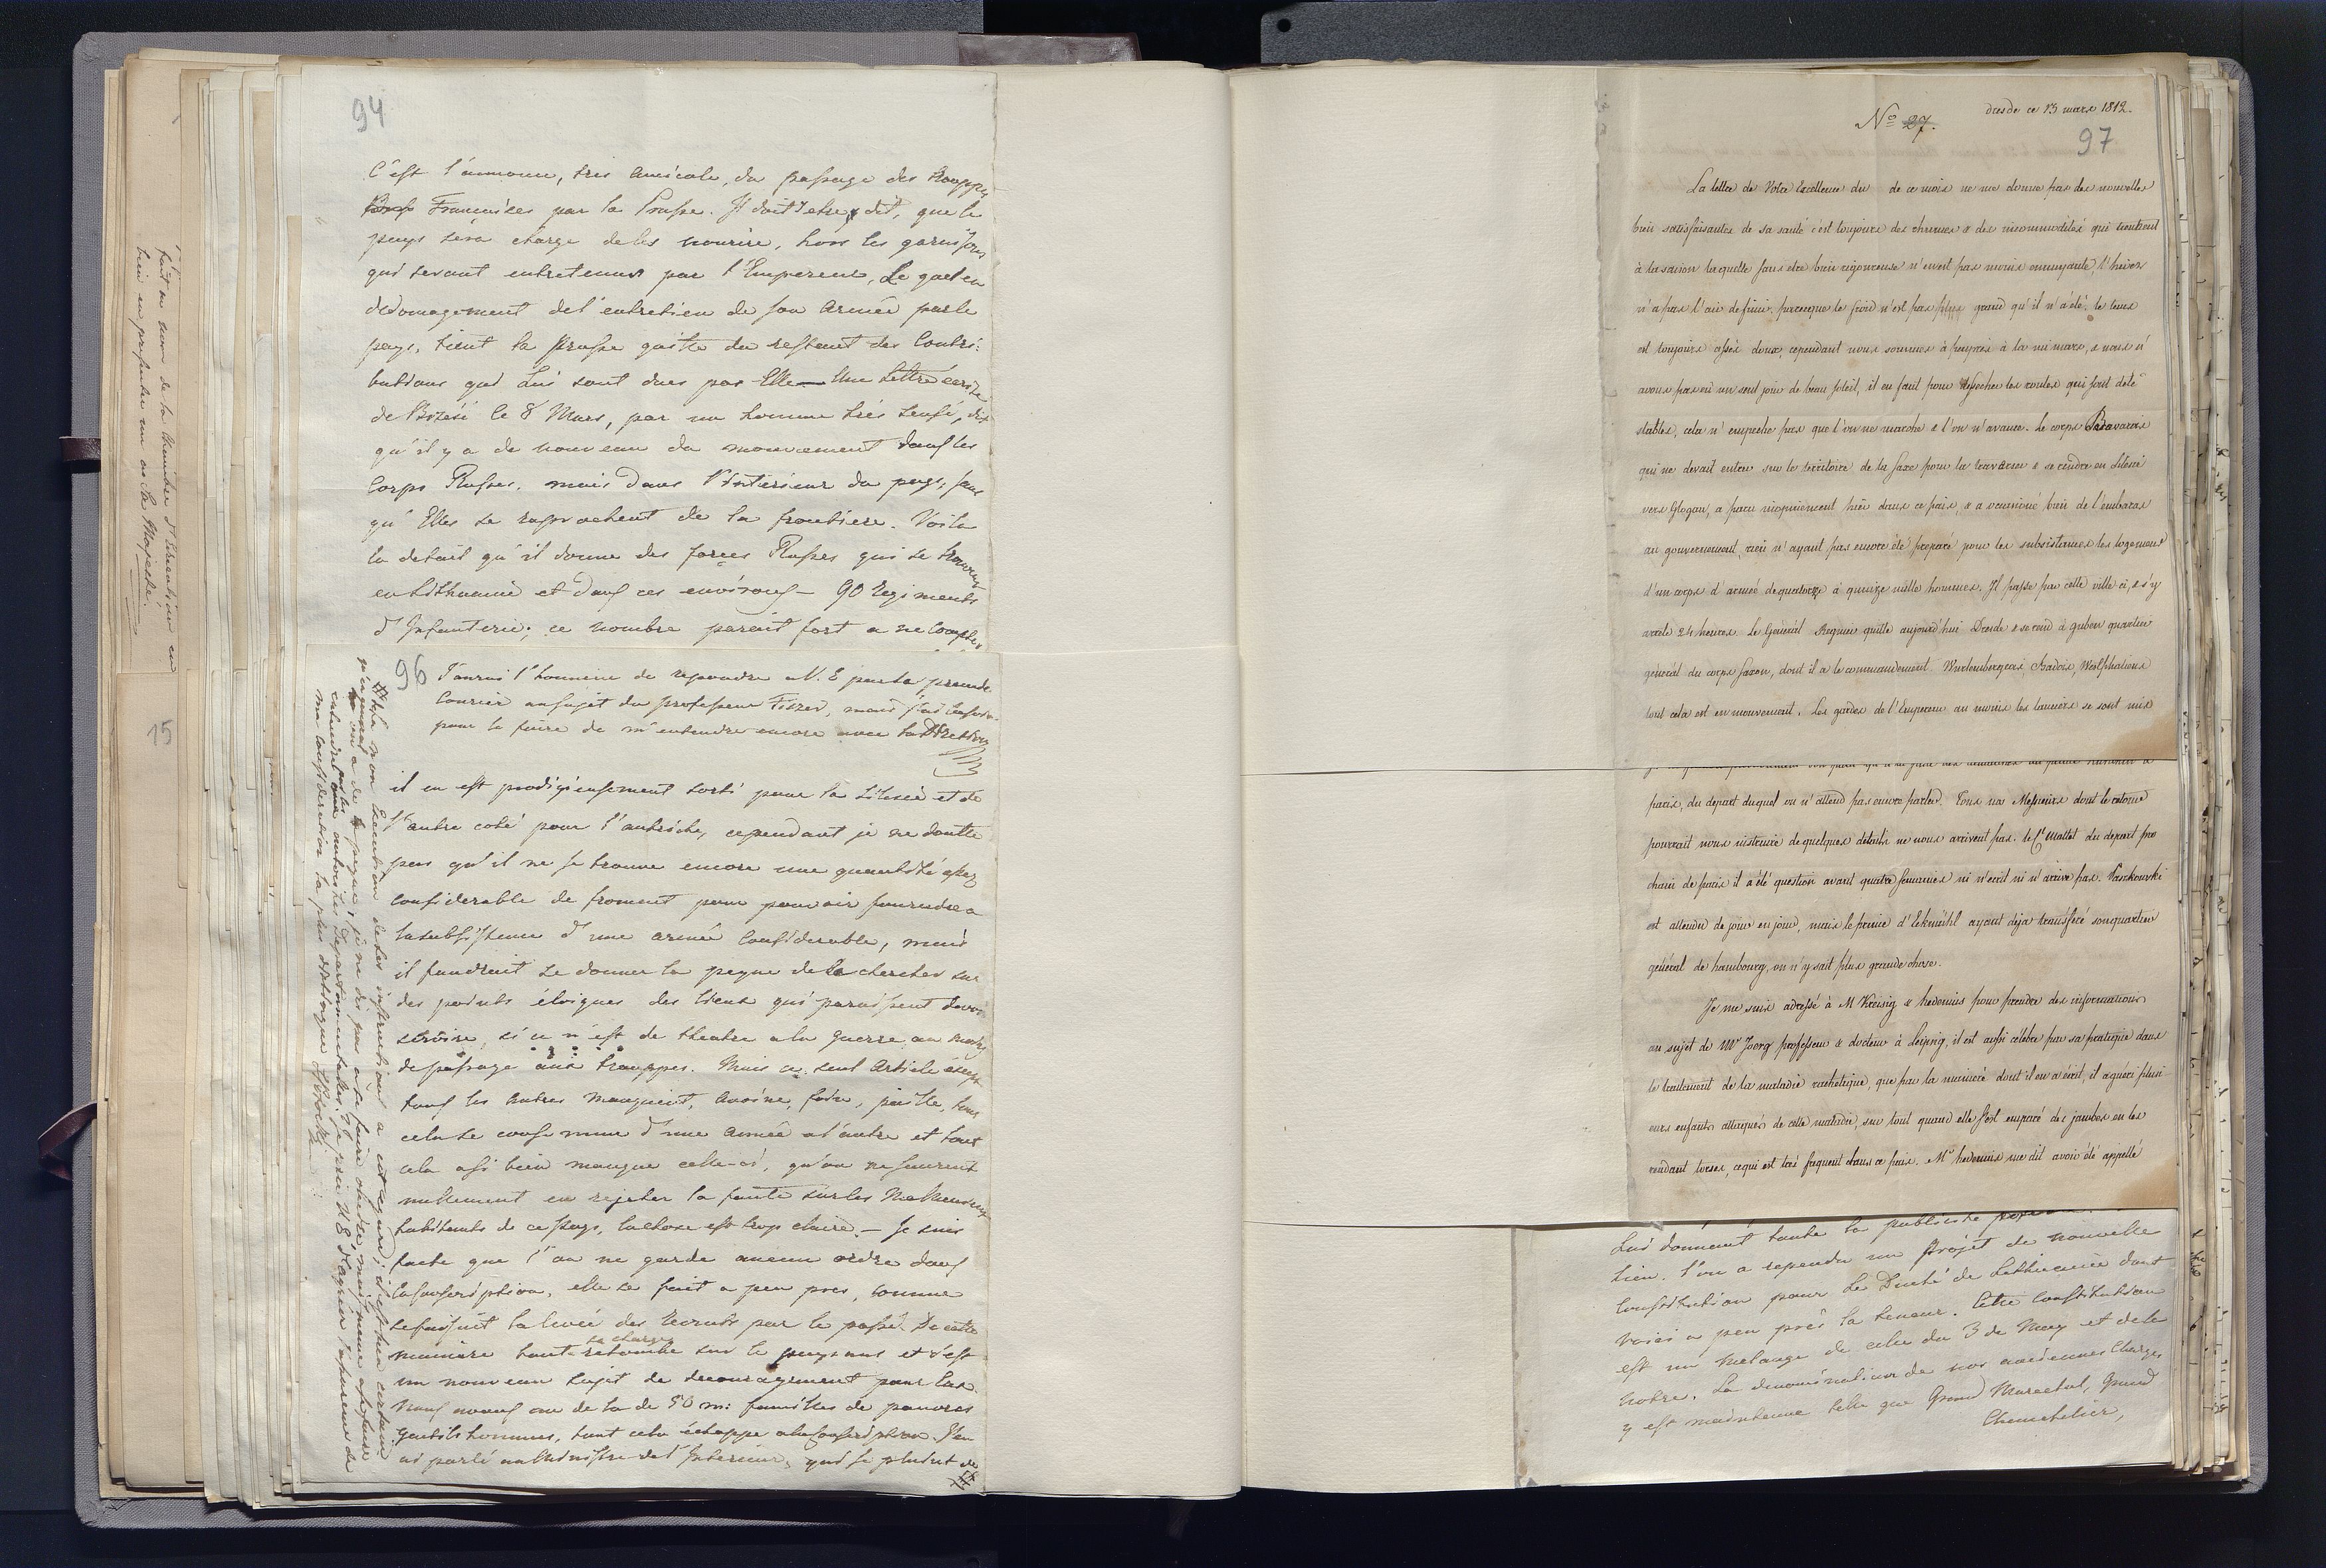 fait au nom de la Chambre d'
bien en presenter un à Sa Majesté.
15
94
C'est l'annonce, tres amicale, du passage des trouppes
Françaises par la Prusse. Il doit y etre dit, que le
pays sera chargé de les nourire, hors les garnisons
qui seront entretenues par l'Empereur, Le quel en
dedomagement de l'entretien de son armée par le
pays, tient la Prusse quitte du restant des Contri:
butions qui Lui sont dues par Elle — Une Lettre ecrite
de Brzesc le 8 Mars, par un homme très sensé, dit
qu'il y a de nouveau du mouvement dans les
Corps Russes, mais dans l'interieur du pays, sans
qu'Elles se raprochent de la frontiere. Voila
le detail qu'il donne des forces Russes qui se trouvent
en Lithuanie et dans ces environs — 90 Regiments
d'Infanterie; ce nombre parait fort a ne compter
96
J'aurai l'honneur de repondre a V. E par le prem.
Courier au sujet du professeur , mais j'ai
pour le faire de m'entendre encore avec la Direction
il en est prodigieusement sorti pour la Silesie et de
l'autre coté pour l'autriche, cependant je ne doutte
pas qu'il ne se trouve encore une quantité assez
considerable de froment pour pouvoir fournir a
la subsistence d'une armée considerable, mais
il faudrait se donner la peyne de le chercher sur
des points éloignes des lieux qui paraissent devoir
servire, si ce n'est de theatre a la guerre au moins
de passage aux trouppes. Mais ce seul Article excepté
tous les autres manquent, avoine, foin, paille, tous
cela se consomme d'une année a l'autre et tout
cela a si bien manqué celle-ci, qu'on ne saurent
nullement en rejetter la faute sur les Malheureux
habitants de ce pays, la chose est trop claire. — Je suis
faché que l'on ne garde aucun ordre dans
la conscription, elle se fait a peu pres, comme
se faisait la levée des Recruts par le passé. De cette
la charge
maniere toute retombe sur le paysans et c'est
un nouveau sujet de decouragement pour Eux.
Nous avons au de la de 50 m: familles de pauvres
gentils hommes, tout cela échappe a la conscription. J'en
ai parlé au Ministre de l'Interieur, qui se plaint de
que la non Execution de ses instructions a cet egard; il est bien certain
qu'en general on a de la peyne, ici ne dis pas a se faire obeire, mais meme a se faire
entendre par les autorités Departementales. Je prie V. E d'agreer l'assurance de
ma consideration la plus distinguée
No 27.
dresde ce 13 mars 1812.
97
La lettre de Votre Excellence du de ce mois ne me donne pas des nouvelles
bien satisfaisantes de sa santé c'est toujours des rhumes & des incommodités qui tiennent
à la saison laquelle sans etre bien rigoureuse n'en est pas moins ennuyante, l'hiver
n'a pas l'air de finir, parceque le froid n'est pas plus grand qu'il n'a été; le tems
est toujours assés doux, cependant nous sommes à peuprès à la mi mars, & nous n'
avons pas eû un seul jour de beau soleil, il en faut pour dessecher les routes qui sont dete
stables, cela n'empeche pas que l'on ne marche & l'on n'avance. Le corps Bavarois
qui ne devait entrer sur le territoire de la Saxe pour la traverser & se rendre en Silesie
vers Glogau, a paru inopinement hier dans ce païs, & a occasioné bien de l'embaras
au gouvernement, rien n'ayant pas encore été preparé pour les subsistances les logemens
d'un corps d'armée de quatorze à quinze mille hommes. Il passe par cette ville ci, & s'y
arrête 24 heures. Le Général Regnier quitte aujourd'hui Dresde & se rend à guben quartier
général du corps saxon, dont il a le commandement. Wurtembergeois, Badois, Westphaliens
tout cela est en mouvement. Les gardes de l'Empereur au moins les lanciers se sont mis
paris, du depart duquel on n'attend pas encore parler. Tous nos Messieurs dont le retour
pourrait nous instruire de quelques détails ne nous arrivent pas. le Ct Mattet du depart pro
chain de paris il a été question avant quatre semaines ni n'ecrit ni n'arrive pas. Paszkowski
est attendu de jour en jour, mais le prince d'Ekmühl ayant deja transferé son quartier
général de hambourg, on n'y sait plus grande chose.
Je me suis adressé à M Kreisig & hedenius pour prendre des informations
au sujet de Mr Joerg professeur & docteur à Leipzig, il est aussi célèbre par sa pratique dans
le traitement de la maladie rachitique, que par la maniere dont il en a écrit, il a guéri plusi
eurs enfants attaqués de cette maladie, sur tout quand elle s'est emparé des jambes en les
rendant torses, ce qui est très frequent dans ce païs. Mr hedenius me dit avoir été appellé
lui donnent toute la publicité
tien. l'on a rependu un projet de nouvelle
Constitution pour Le Duché de Lithuanie dont
voici a peu près la teneur. Cette Constitution
est un melange de celle du 3 de May et de la
notre. La denomination de nos anciennes Charges
y est maintenue telle que Grand Marechal, Grand
Chancelier,